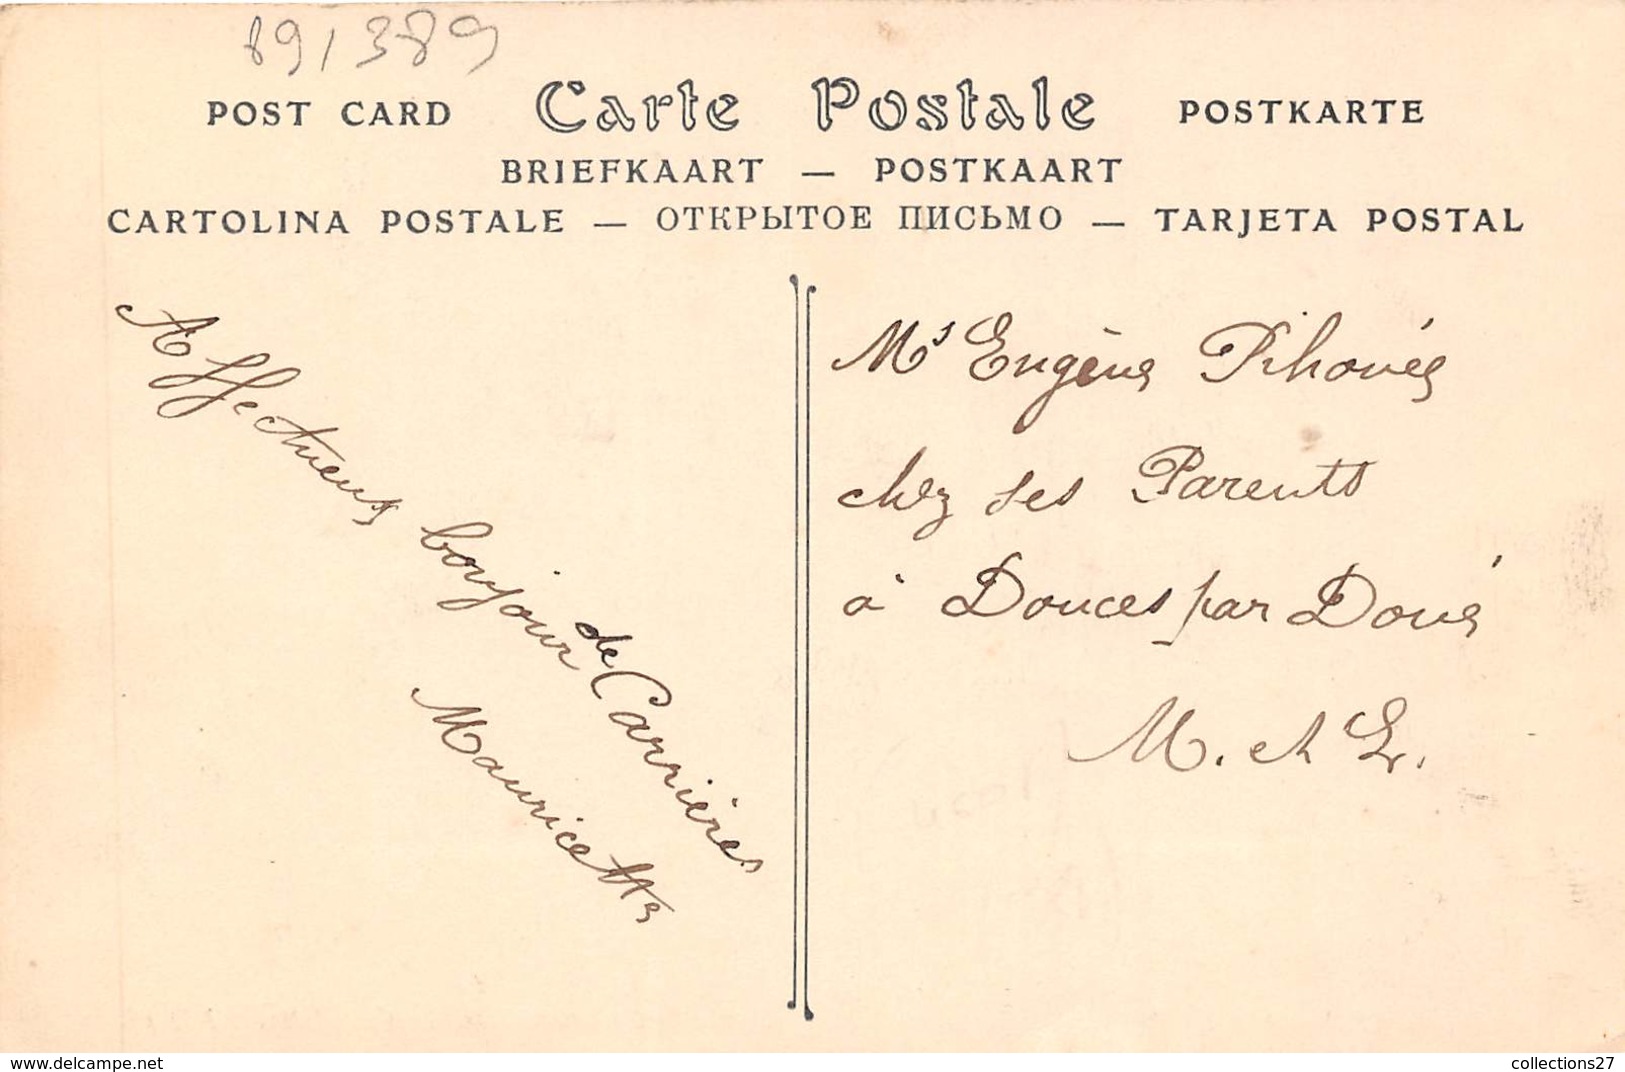 89/389
POST CARD Carte Postale POSTKARTE
BRIEFKAART — POSTKAART
CARTOLINA POSTALE — ОТКРЫТОЕ ПИСЬМО — TARJETA POSTAL
Affectueux bonjour
de Carrières
Mauricette
Mr Eugène
chez ses Parents
à Douces par Doué
M. et L.
www.delcampe.net
collections27